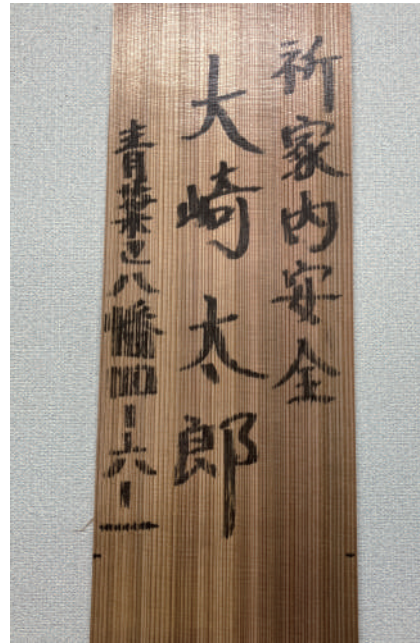 祈家内安全
大崎太郎
青葉区八幡四ー六ー一